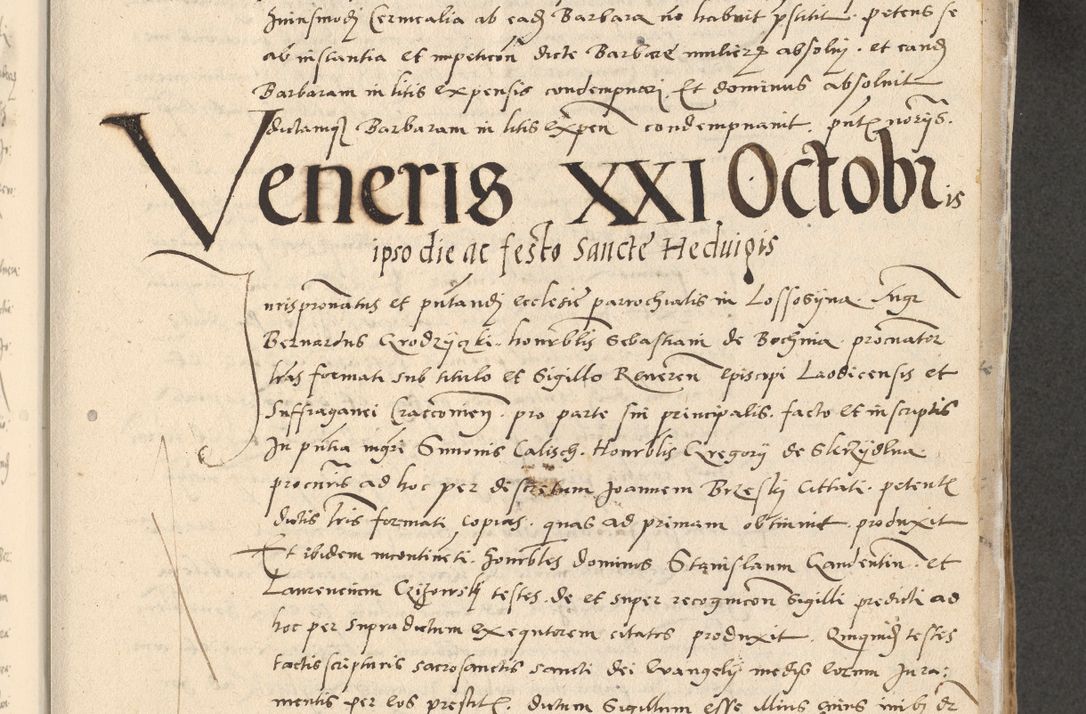 huiusmodj Cermcalia ab eadẽ Barbara nõ habuit pstitit. petens se
ab instantia et impeticõn dicte Barbare mulierꝫ absolui. et eandẽ
Barbaram in litis expensis condempnarj Et dominus absoluit
dictamqꝫ Barbaram in litis expen condempnauit. pñtꝫ norijs.
Veneris XXI Octobris
ipso die ac festo Sancte Heduigis
Jurispronatus et pñtandj ecclesie parrochialis in Lossosyna. Ingr
Bernardus Grodzyczki. honrblis Sebastiani de Bochnia. procuator
lras formati sub titulo et Sigillo Reueren Episcopi Laodicensis et
Suffraganei Cracouien. pro parte sui principalis. facto et in scriptis
In pñtia mgrj Simonis Calisch. Honrblis Gregorij de
procuris ad hoc per discretum Joannem Brzeskj Cittati. petentꝫ
dictis lris formati copias. quas ad primam obtinuit. produxit
Et ibidem incontinẽti. Honrbles dominos Stanislaum Gaudentin. et
Laurencium Czizowskj testes. de et super recognicõn Sigilli predicti ad
hoc per supradictum exequtorem citatos produxit. Quiquidẽ testes
tactis scripturis sacrosanctis sancti dei Evangelij medijs eorum Jura:
mentis per eos prestitꝫ. dictum Sigillum esse illius cuius inibj dr